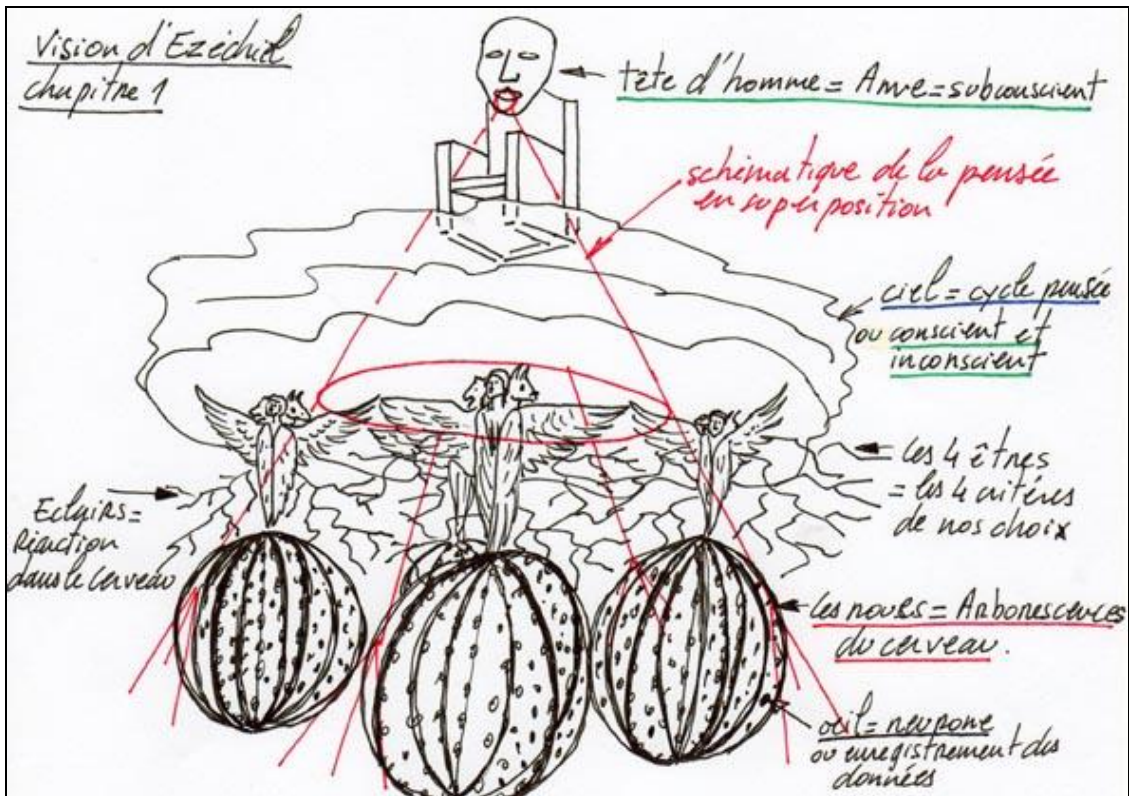 Vision d'Ezéchiel
chapitre 1
tête d'homme = Ame = subconscient
schématique de la pensée
en superposition
ciel = cycle pensée
ou conscient et
inconscient
les 4 êtres
= les 4 critéres
de nos choix
Eclairs =
Réaction
dans le cerveau
les roues = Arborescences
du cerveau.
oeil = neurone
ou enregistrement des
données